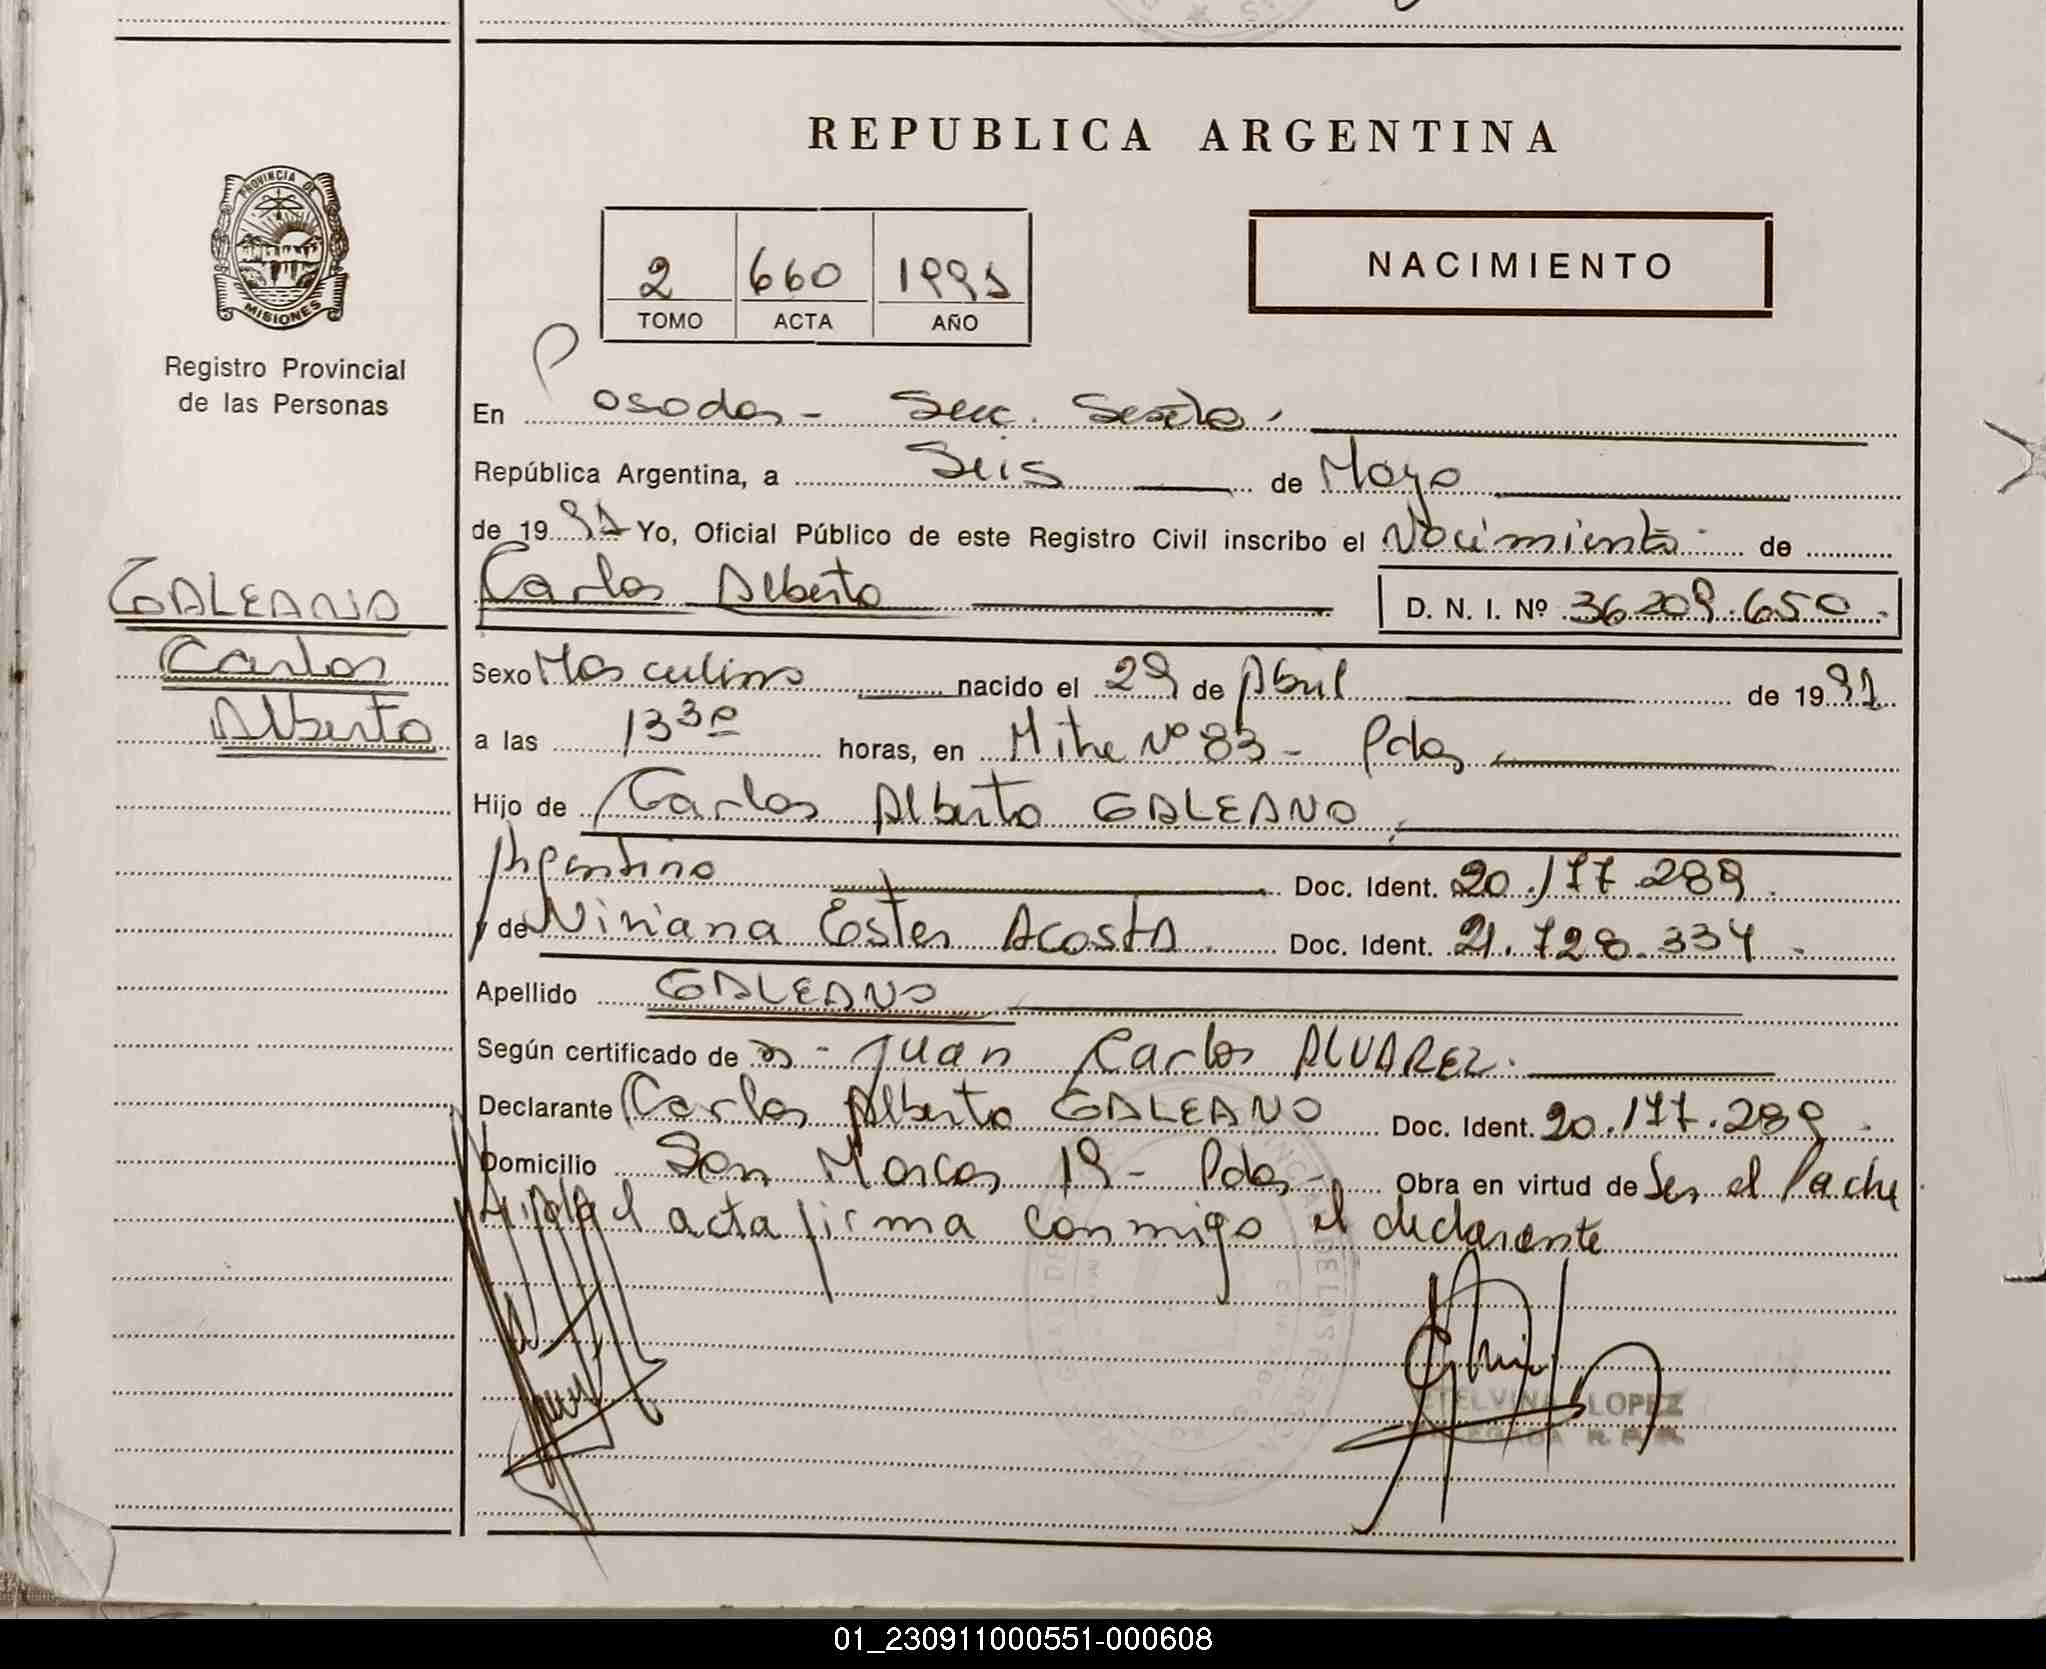 REPUBLICA ARGENTINA
PROVINCIA DE
MISIONES
Registro Provincial
de las Personas
2 660 1991
TOMO ACTA AÑO
NACIMIENTO
En Posadas - Secc. Sexta
República Argentina, a Seis de Mayo
de 1991 Yo, Oficial Público de este Registro Civil inscribo el Nacimiento de
Carlos Alberto D. N. I. Nº 36.209.650.-
GALEANO
Carlos
Alberto
Sexo Masculino nacido el 29 de Abril de 1991
a las 13 30 horas, en Mitre Nº 83 - Pdas
Hijo de Carlos Alberto GALEANO,
Argentino Doc. Ident. 20.177.289.
y de Viviana Ester ACOSTA Doc. Ident. 21.728.334.-
Apellido GALEANO
Según certificado de Juan Carlos ALVAREZ.
Declarante Carlos Alberto GALEANO Doc. Ident. 20.177.289.
Domicilio San Marcos 19 - Pdas - Obra en virtud de Ser el Padre
acta firma conmigo el declarante
ETELVINA LOPEZ
DELEGADA R. P. P.
01_230911000551-000608